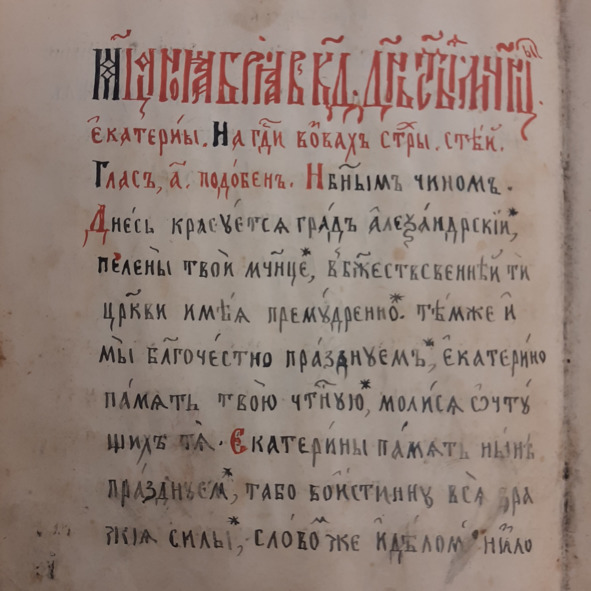 Мⷭ҇ца ноѧбрїѧ в҃ кд҃. дн҃ь ст҃ы́ѧ мч҃нцы
Е҆катери́ны. На гдⷭ҇и возвахъ стⷯры. стⷯе́й.
Гласъ, а҃. подо́бенъ. Нбⷭ҇нымъ чиномъ.
Дне́сь красꙋ́етсѧ гра́дъ а҆леѯа́ндрскїй,*
пелены̀ твоѝ мч҃нце, в̾бжⷭ҇ествсвеннѣ́й тѝ
цр҃кви имѣ́ѧ премꙋ́дренно.* тѣ́мже и҆̀
мы̀ бл҃гоче́стно пра́зднꙋемъ,* є҆катери́но
па́мѧть твою̀ чтⷭ҇нꙋ́ю,* молисѧ ѡ҆ чтꙋ́
щихъ тѧ̀. Е҆катери́ны па́мѧть ны́нѣ
пра́зднꙋем̾,* та бо вои́стиннꙋ всѧ̑ вра
жїѧ си́лы,* сло́вомⷨ же и҆ дѣ́ломъ ни́зло